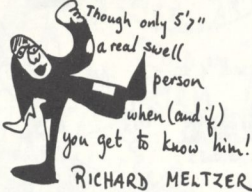 Though only 5'7"
a real swell
person
when (and if)
you get to know him!
RICHARD MELTZER